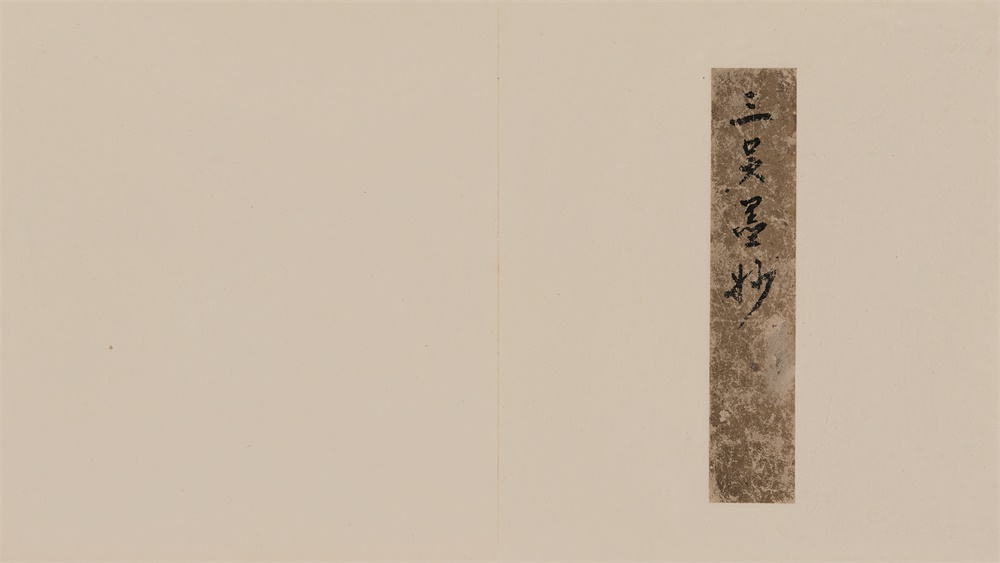 三吳墨妙